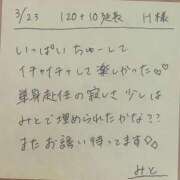 3/23 120+10延長 H様
いっぱいちゅーして
イチャイチャして楽しかったね♡
単身赴任の寂しさ少しは
みとで埋められたかな??
またお誘い待ってます♡
みと